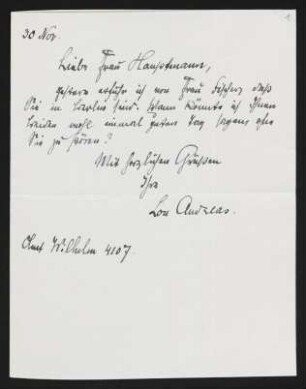 1
30 Nov.
Liebe Frau Hauptmann,
gestern erfuhr ich von Frau Fischer, daß
Sie in Berlin sind. Wann könnte ich Ihnen
beiden wohl einmal guten Tag sagen, ohne
Sie zu stören?
Mit herzlichen Grüssen
Ihre
Lou Andreas.
Amt Wilhelm 4107.